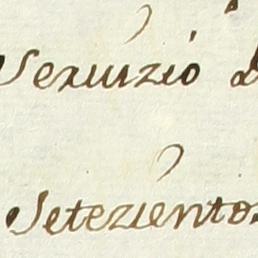 Seruizio
Setezientos